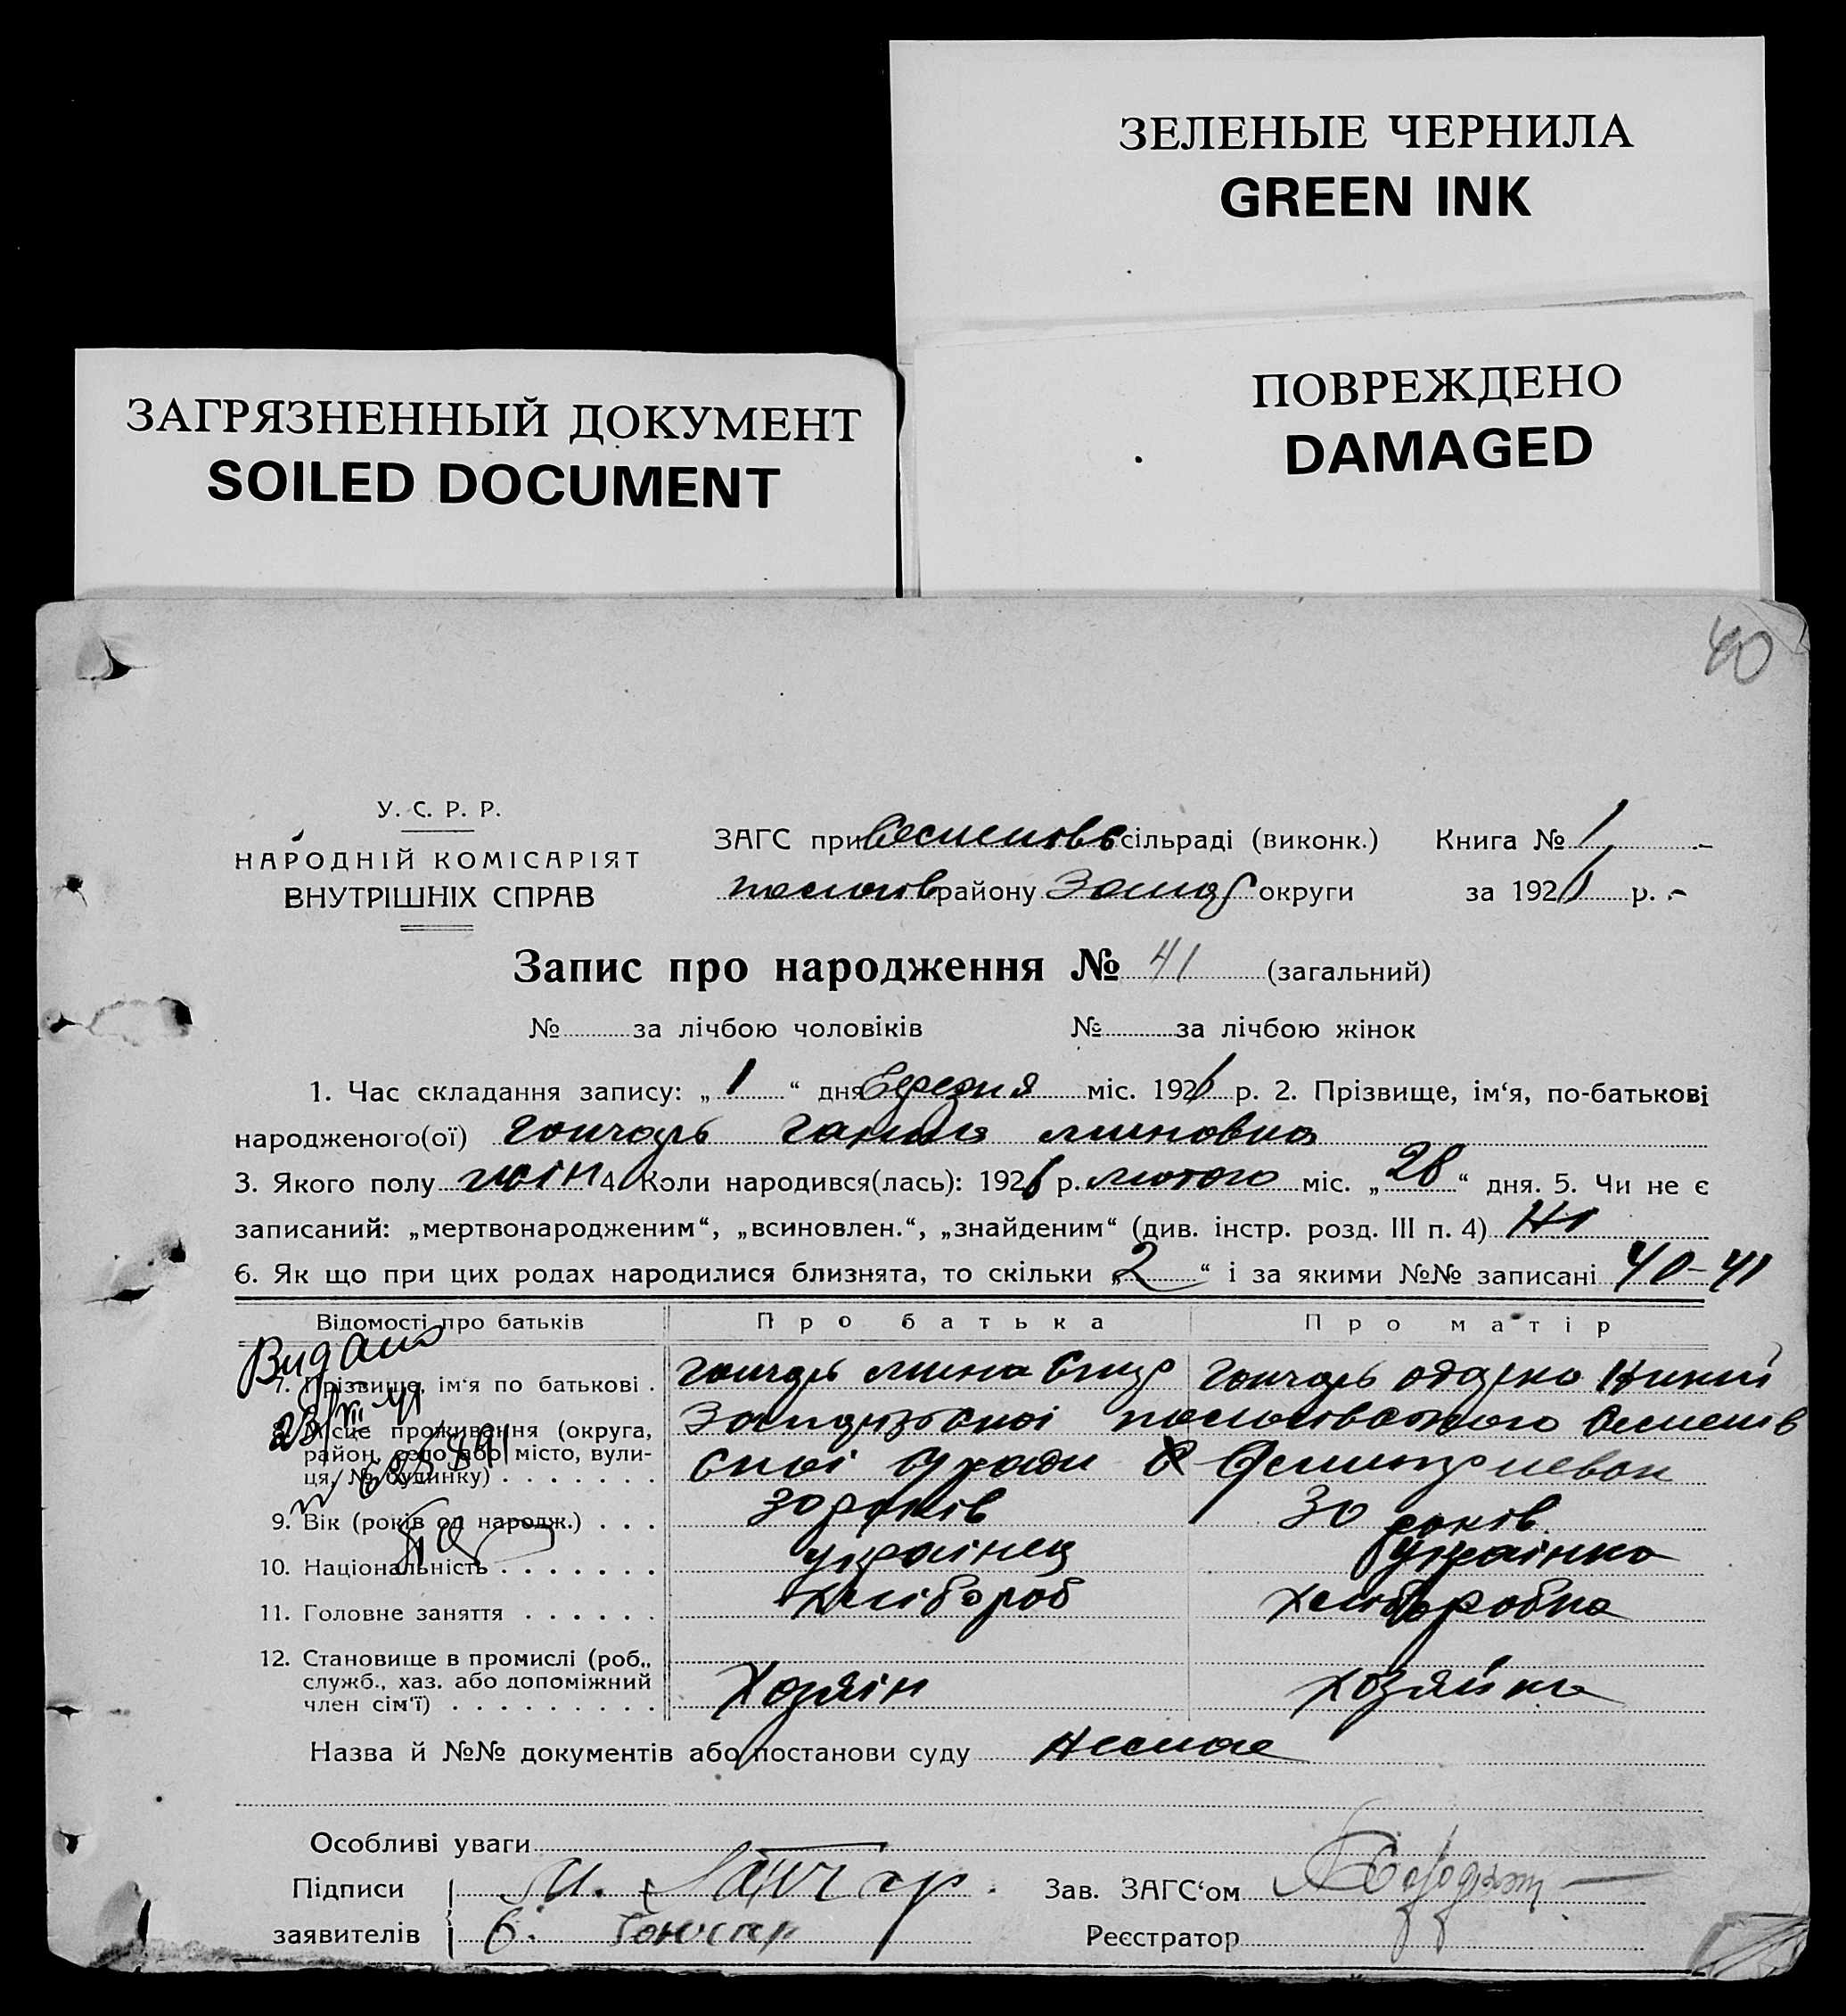 ЗЕЛЕНЫЕ ЧЕРНИЛА
GREEN INK
ПОВРЕЖДЕНО
DAMAGED
ЗАГРЯЗНЕННЫЙ ДОКУМЕНТ
SOILED DOCUMENT
40
У. С. Р. Р.
НАРОДНІЙ КОМІСАРІЯТ
ВНУТРІШНІХ СПРАВ
ЗАГС при сільраді (виконк.) Книга № 1
району округи за 192 р.
Запис про народження № 41 (загальний)
№ за лічбою чоловіків № за лічбою жінок
1. Час складання запису: „ 1 “ дня березня міс. 192 р. 2. Прізвище, ім‘я, по-батькові
народженого(ої) гончарь ганна миновна
3. Якого полу жін 4. Коли народився(лась): 192 р. лютого міс. „ 28 “ дня. 5. Чи не є
записаний: „мертвонародженим“, „всиновлен.“, „знайденим“ (див. інстр. розд. III п. 4) Ні
6. Як що при цих родах народилися близнята, то скільки „ 2 “ і за якими №№ записані 40-41
Відомості про батьків Про батька Про матір
Видано
7. Прізвище, ім‘я по батькові . гончарь мина гончарь одарка
8. Місце проживання (округа,
район, село або місто, вули-
ця, № будинку) . . . . . . .
9. Вік (років од народж.) . . . 30 років 30 років
10. Національність . . . . . . . українец українка
11. Головне заняття . . . . . . хлібороб хліборобка
12. Становище в промислі (роб.,
служб., хаз. або допоміжний
член сім‘ї) . . . . . . . . . Хозяїн хозяйка
Назва й №№ документів або постанови суду немае
Особливі уваги
Підписи М. Гончар Зав. ЗАГС‘ом
заявителів Гончар Реєстратор